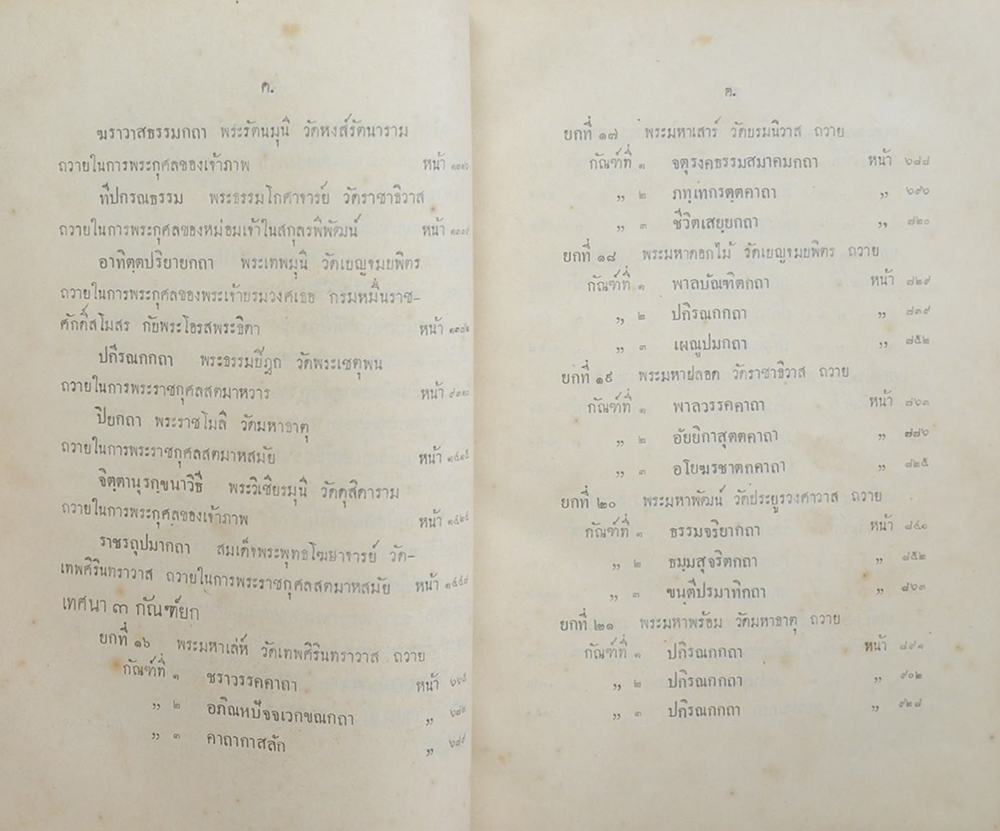 ค.
ฆราวาสธรรมกถา พระรัตนมุนี วัดหงส์รัตนาราม
ถวายในการพระกุศลของเจ้าภาพ หน้า
ทีปกรณธรรม พระธรรมโกศาจารย์ วัดราชาธิวาส
ถวายในการพระกุศลของหม่อมเจ้าในสกุลรพิพัฒน์ หน้า
อาทิตฺตปริยายกถา พระเทพมุนี วัดเบญจมบพิตร
ถวายในการพระกุศลของพระเจ้าบรมวงศเธอ กรมหมื่นราช-
ศักดิ์สโมสร กับพระโอรสพระธิดา หน้า
ปกิรณกกถา พระธรรมปิฎก วัดพระเชตุพน
ถวายในการพระราชกุศลสตมาหวาร หน้า
ปิยกถา พระราชโมลี วัดมหาธาตุ
ถวายในการพระราชกุศลสตมาหสมัย หน้า
จิตฺตานุรกฺขนาวิธี พระวิเชียรมุนี วัดดุสิดาราม
ถวายในการพระกุศลของเจ้าภาพ หน้า
ราชรถูปมากถา สมเด็จพระพุทธโฆษาจารย์ วัด-
เทพศิรินทราวาส ถวายในการพระราชกุศลสตมาหสมัย หน้า
เทศนา ๓ กัณฑ์ยก
ยกที่ ๑๖ พระมหาเล่ห์ วัดเทพศิรินทราวาส ถวาย
กัณฑ์ที่ ๑ ชราวรรคคาถา หน้า
„ ๒ อภิณหปัจจเวกขณกถา „
„ ๓ คาถากาสลัก „
ต.
ยกที่ ๑๗ พระมหาเสาร์ วัดบรมนิวาส ถวาย
กัณฑ์ที่ ๑ จตุรงคธรรมสมาคมกถา หน้า ๖๘๘
„ ๒ ภทฺเทกรตฺตคาถา „
„ ๓ ชีวิตเสยฺยกถา „
ยกที่ ๑๘ พระมหาดอกไม้ วัดเบญจมบพิตร ถวาย
กัณฑ์ที่ ๑ พาลบัณฑิตกถา หน้า
„ ๒ ปกิรณกกถา „
„ ๓ เผณูปมกถา „
ยกที่ ๑๙ พระมหาปลอด วัดราชาธิวาส ถวาย
กัณฑ์ที่ ๑ พาลวรรคคาถา หน้า
„ ๒ อัยยิกาสุตตคาถา „
„ ๓ อโยฆรชาตกคาถา „
ยกที่ ๒๐ พระมหาพัฒน์ วัดประยูรวงศาวาส ถวาย
กัณฑ์ที่ ๑ ธรรมจริยากถา หน้า
„ ๒ ธมฺมสุจริตกถา „ ๘๕๒
„ ๓ ขนฺตีปรมาทิกถา „ ๘๖๓
ยกที่ ๒๑ พระมหาพร้อม วัดมหาธาตุ ถวาย
กัณฑ์ที่ ๑ ปกิรณกกถา หน้า ๘๙๑
„ ๒ ปกิรณกกถา „ ๙๐๒
„ ๓ ปกิรณกกถา „